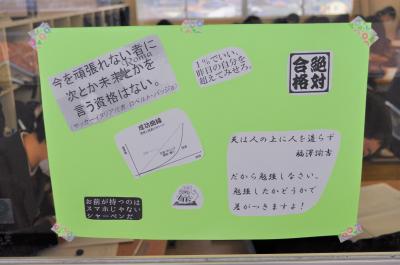 今を頑張れない者に
次とか未来とかを
言う資格はない。
(サッカーイタリア代表 ロベルト・バッジョ)
1%でいい、
昨日の自分を
超えてみせろ。
絶対
合格
成功曲線
天は人の上に人を造らず
福澤諭吉
だから勉強しなさい。
勉強したかどうかで
差がつきますよ！
お前が持つのは
スマホじゃない
シャーペンだ